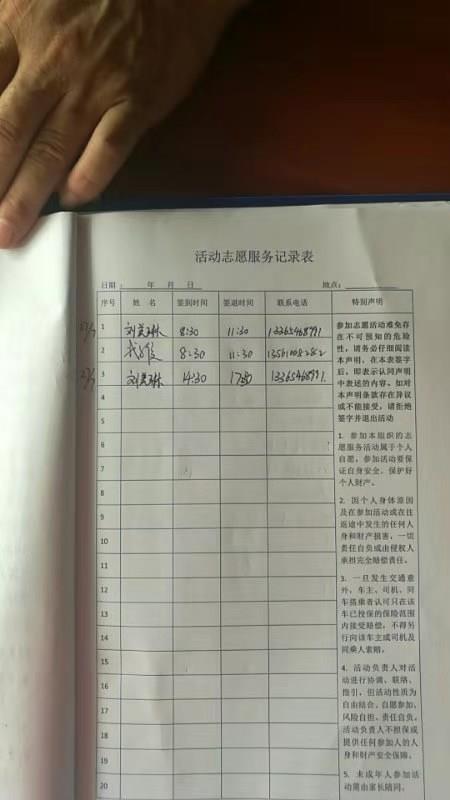 活动志愿服务记录表
日期： 年 月 日 地点：
序号 姓 名 签到时间 签退时间 联系电话 特别声明
1 8:30 11:30 13365468991
2 8:30 11:30
3 14:30 13365468991
4
5
6
7
8
9
10
11
12
13
14
15
16
17
18
19
20
参加志愿活动难免存
在不可预知的危险
性，请务必仔细阅读
本声明，在本表签字
后，即表示认同声明
中表述的内容，如对
本声明条款存在异议
或不能接受，请拒绝
签字并退出活动
1. 参加本组织的志
愿服务活动属于个人
自愿，参加活动要保
证自身安全、保护好
个人财产。
2. 因个人身体原因
及在参加活动或在往
返途中发生的任何人
身和财产损害，一切
责任自负或由侵权人
承担完全赔偿责任。
3. 一旦发生交通意
外，车主、司机、同
车搭乘者认可只在该
车已投保的保险范围
内接受赔偿，不得另
行向该车主或司机及
同乘人索赔。
4. 活动负责人对活
动进行协调、联络、
指引，但活动性质为
自由结合、自愿参加、
风险自担、责任自负，
活动负责人不担保或
提供任何参加人的人
身和财产安全保障。
5. 未成年人参加活
动需由家长陪同。